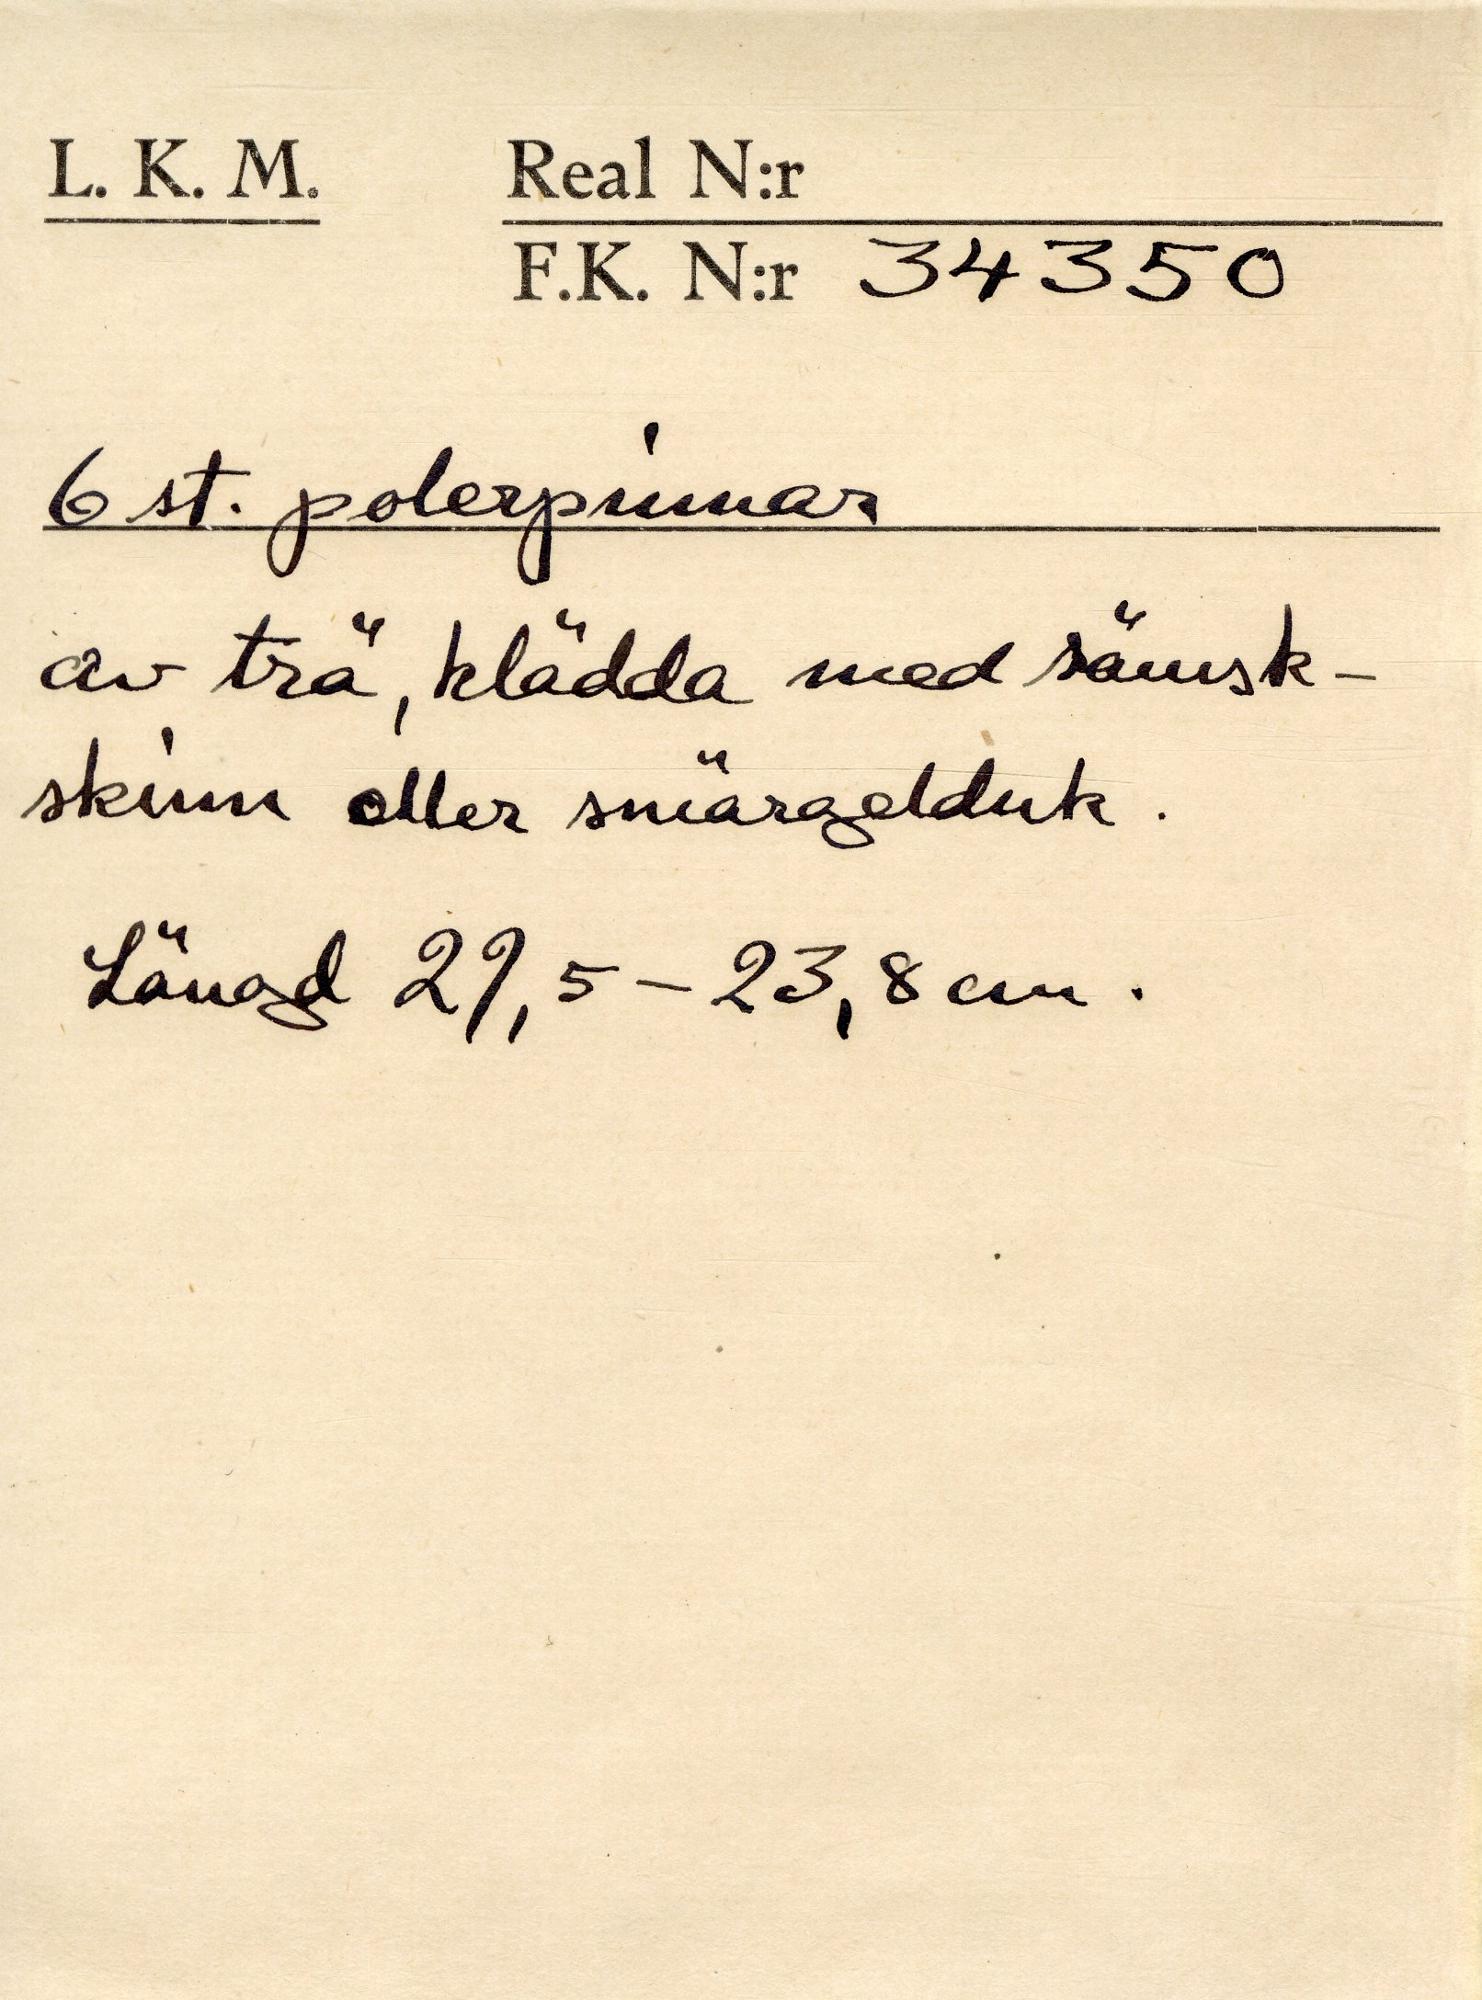 L. K. M.
Real N:r
F.K. N:r 34350
6 st. polerpinnar
av trä, klädda med sämsk-
skinn eller smärgelduk.
Längd 29,5 - 23,8 cm.